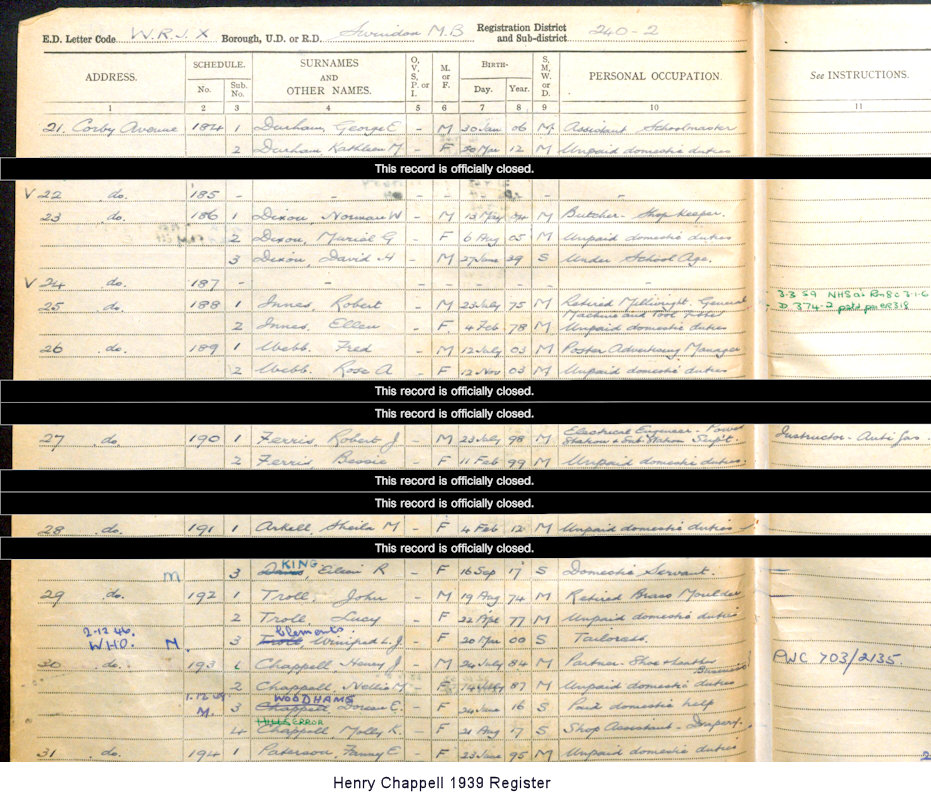 E.D. Letter Code W.R.J.X Borough, U.D. or R.D. Swindon M.B Registration District and Sub-district 240-2
ADDRESS. SCHEDULE. No. Sub. No. SURNAMES AND OTHER NAMES. O, V, S, P. or I. M. or F. BIRTH- Day. Year. S, M, W. or D. PERSONAL OCCUPATION. See INSTRUCTIONS.
1 2 3 4 5 6 7 8 9 10 11
21. Corby Avenue 184 1 Durham, George E - M 30 Jan 06 M Assistant Schoolmaster
2 Durham Kathleen M - F 30 Mar 12 M Unpaid domestic duties
This record is officially closed.
V 22 do. 185 - - - - - - - -
23 do. 186 1 Dixon, Norman W - M 13 May 04 M Butcher - Shop Keeper.
2 Dixon, Muriel G - F 6 Aug 05 M Unpaid domestic duties
3 Dixon, David A - M 27 June 39 S Under School Age.
V 24 do. 187 - - - - - - -
25 do. 188 1 Innes, Robert - M 23 July 75 M Retired Millwright. General Machine and Tool Fitter 3.3.59
2 Innes. Ellen - F. 4 Feb. 78 M Unpaid domestic duties
26 do. 189 1 Webb. Fred - M 12 July 03 M Poster Advertising Manager
2 Webb. Rose A - F 12 Nov 03 M Unpaid domestic duties
This record is officially closed.
This record is officially closed.
27 do 190 1 Ferris, Robert J - M 23 July 98 M Electrical Engineer - Power Station & Sub Station Sup't. Instructor - Anti Gas.
2 Ferris, Bessie - F 11 Feb 99 M Unpaid domestic duties.
This record is officially closed.
This record is officially closed.
28 do. 191 1 Arkell, Sheila M - F 4 Feb 12 M Unpaid domestic duties
This record is officially closed.
M 3 KING, Eileen R - F 16 Sep 17 S Domestic Servant.
29 do. 192 1 Troll, John - M 19 Aug 74 M Retired Brass Moulder
2 Troll, Lucy - F 22 Apr 77 M Unpaid domestic duties
2.12.46. WHO. M. 3 Troll, Clements Winifred L.J. - F 20 Mar 00 S Tailoress.
30 do 193 1 Chappell Henry J. - M 24 July 84 M Partner - Shoe & Leather Business PWC 703/2135
2 Chappell, Nellie M - F 14 July 87 M Unpaid domestic duties
M. 3 Chappell WOODHAMS Doreen E. - F 24 June 16 S Paid domestic help
4 HILLS ERROR Chappell Molly K. - F 21 Aug 17 S Shop Assistant - Drapery.
31 do. 194 1 Paterson, Fanny E - F 23 June 95 M Unpaid domestic duties
Henry Chappell 1939 Register